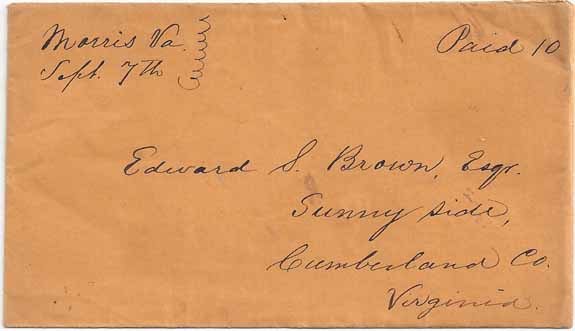 Morris Va.
Sept. 7th
Paid 10
Edward S. Brown, Esqr.
Sunny side,
Cumberland Co.
Virginia.